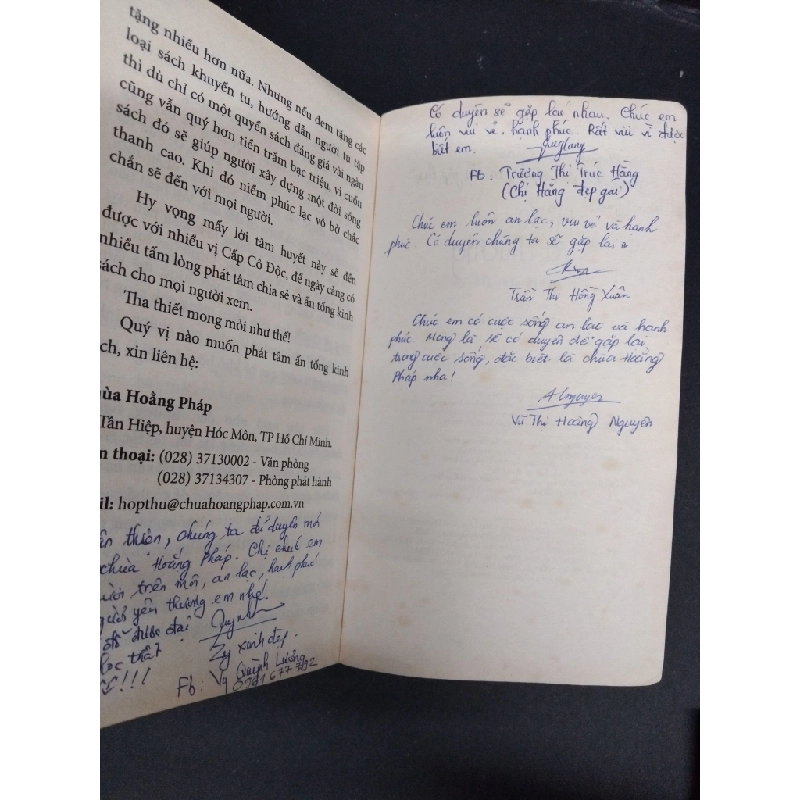 tặng nhiều hơn nữa. Nhưng nếu đem tặng các
loại sách khuyến tu, hướng dẫn người tu tập
thì dù chỉ có một quyển sách đáng giá vài ngàn
cũng vẫn quý hơn tiền trăm bạc triệu, vì cuốn
sách đó sẽ giúp người xây dựng một đời sống
thanh cao. Khi đó niềm phúc lạc vô bờ chắc
chắn sẽ đến với mọi người.
Hy vọng mấy lời tâm huyết này sẽ đến
được với nhiều vị Cấp Cô Độc, để ngày càng có
nhiều tấm lòng phát tâm chia sẻ và ấn tống kinh
sách cho mọi người xem.
Tha thiết mong mỏi như thế!
Quý vị nào muốn phát tâm ấn tống kinh
ch, xin liên hệ:
ùa Hoằng Pháp
Tân Hiệp, huyện Hóc Môn, TP Hồ Chí Minh.
n thoại: (028) 37130002 - Văn phòng
(028) 37134307 - Phòng phát hành
il: hopthu@chuahoangphap.com.vn
ân thiện, chúng ta đủ duyên mới
chùa Hoằng Pháp. Chị chúc em
trên môi, an lạc, hạnh phúc
người yêu thương em nhé!
xinh đẹp.
!!!
Fb: Vy Quỳnh Lương
Có duyên sẽ gặp lại nhau. Chúc em
luôn vui vẻ, hạnh phúc. Rất vui vì được
biết em.
Fb: Trương Thị Trúc Hằng
(Chị Hằng đẹp gái)
Chúc em luôn an lạc, vui vẻ và hạnh
phúc. Có duyên chúng ta sẽ gặp lại
Trần Thị Hồng Xuân
Chúc em có cuộc sống an lạc và hạnh
phúc. Mong là sẽ có duyên để gặp lại
trong cuộc sống, đặc biệt là chùa Hoằng
Pháp nha!
Vũ Thị Hoàng Nguyên